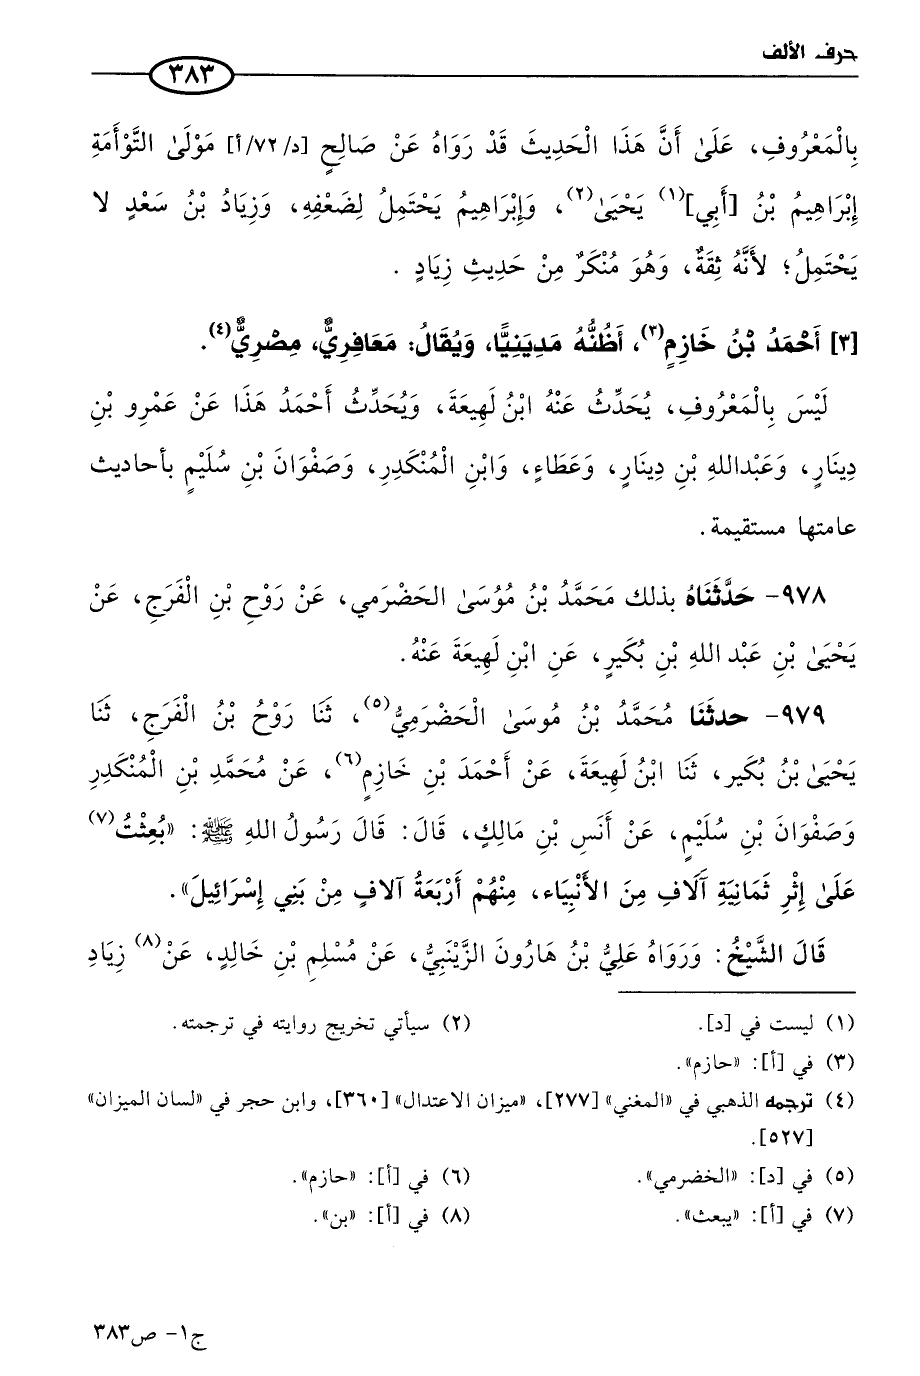 حرف الألف
٣٨٣
بِالْمَعْرُوفِ، عَلَىٰ أَنَّ هَذَا الْحَدِيثَ قَدْ رَوَاهُ عَنْ صَالِحٍ [د/ ٧٢/أ] مَوْلَىٰ التَّوْأَمَةِ
إِبْرَاهِيمُ بْنُ [أَبِي](١) يَحْيَىٰ(٢)، وَإِبْرَاهِيمُ يَحْتَمِلُ لِضَعْفِهِ، وَزِيَادُ بْنُ سَعْدٍ لا
يَحْتَمِلُ؛ لأَنَّهُ ثِقَةٌ، وَهُوَ مُنْكَرٌ مِنْ حَدِيثِ زِيَادٍ .
[٣] أَحْمَدُ بْنُ خَازِمٍ(٣)، أَظُنُّهُ مَدِيَنِيًّا، وَيُقَالُ: مَعَافِرِيٌّ، مِصْرِيٌّ(٤).
لَيْسَ بِالْمَعْرُوفِ، يُحَدِّثُ عَنْهُ ابْنُ لَهِيعَةَ، وَيُحَدِّثُ أَحْمَدُ هَذَا عَنْ عَمْرِو بْنِ
دِينَارٍ، وَعَبْداللهِ بْنِ دِينَارٍ، وَعَطَاءٍ، وَابْنِ الْمُنْكَدِرِ، وَصَفْوَانَ بْنِ سُلَيْمٍ بأحاديث
عامتها مستقيمة.
٩٧٨- حَدَّثَنَاهُ بذلك مَحَمَّدُ بْنُ مُوُسَىٰ الحَضْرَمي، عَن رَوْحِ بْنِ الْفَرَجِ، عَنْ
يَحْيَىٰ بْنِ عَبْد اللهِ بْنِ بُكَيرٍ، عَنِ ابْنِ لَهِيعَةَ عَنْهُ.
٩٧٩- حدثَنا مُحَمَّدُ بْنُ مُوسَىٰ الْحَضْرَمِيُّ(٥)، ثَنَا رَوْحُ بْنُ الْفَرَجِ، ثَنَا
يَحْيَىٰ بْنُ بُكَير، ثَنَا ابْنُ لَهِيعَةَ، عَنْ أَحْمَدَ بْنِ خَازِمٍ(٦)، عَنْ مُحَمَّدِ بْنِ الْمُنْكَدِرِ
وَصَفْوَانَ بْنِ سُلَيْمٍ، عَنْ أَنَسِ بْنِ مَالِكٍ، قَالَ: قَالَ رَسُولُ اللهِ ﷺ: «بُعِثْتُ(٧)
عَلَىٰ إِثْرِ ثَمَانِيَةِ آلَافٍ مِنَ الأَنْبِيَاء، مِنْهُمْ أَرْبَعَةُ آلافٍ مِنْ بَنِي إِسْرَائِيلَ».
قَالَ الشَّيْخُ: وَرَوَاهُ عَلِيُّ بْنُ هَارُونَ الزَّيْنَبِيُّ، عَنْ مُسْلِمِ بْنِ خَالِدٍ، عَنْ(٨) زِيَادِ
(١) ليست في [د].
(٢) سيأتي تخريج روايته في ترجمته.
(٣) في [أ]: «حازم».
(٤) ترجمه الذهبي في «المغني» [٢٧٧]، «ميزان الاعتدال» [٣٦٠]، وابن حجر في «لسان الميزان»
[٥٢٧].
(٥) في [د]: «الخضرمي».
(٦) في [أ]: «حازم».
(٧) في [أ]: «يبعث».
(٨) في [أ]: «بن».
ج١- ص٣٨٣